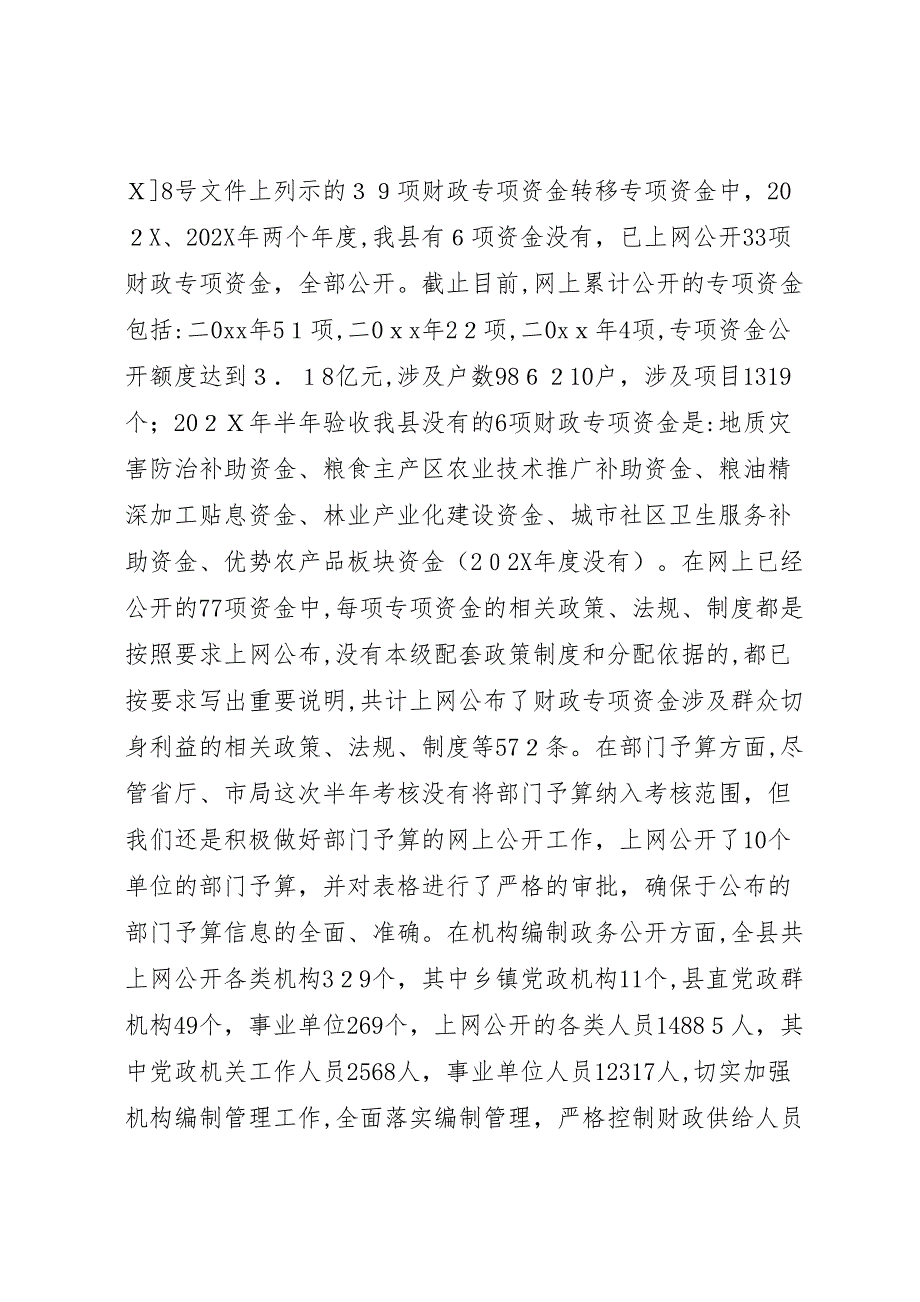 X]8号文件上列示的３９项财政专项资金转移专项资金中，20
２X、202X年两个年度,我县有６项资金没有，已上网公开33项
财政专项资金，全部公开。截止目前,网上累计公开的专项资金
包括:二0xx年5１项,二0ｘx年2２项,二0xｘ年4项,专项资金公
开额度达到３．１8亿元,涉及户数98６２10户，涉及项目1319
个；20２Ｘ年半年验收我县没有的6项财政专项资金是:地质灾
害防治补助资金、粮食主产区农业技术推广补助资金、粮油精
深加工贴息资金、林业产业化建设资金、城市社区卫生服务补
助资金、优势农产品板块资金（2０2X年度没有）。在网上已经
公开的77项资金中,每项专项资金的相关政策、法规、制度都是
按照要求上网公布,没有本级配套政策制度和分配依据的,都已
按要求写出重要说明,共计上网公布了财政专项资金涉及群众切
身利益的相关政策、法规、制度等57２条。在部门予算方面,尽
管省厅、市局这次半年考核没有将部门予算纳入考核范围，但
我们还是积极做好部门予算的网上公开工作，上网公开了10个
单位的部门予算，并对表格进行了严格的审批，确保于公布的
部门予算信息的全面、准确。在机构编制政务公开方面,全县共
上网公开各类机构3２9个，其中乡镇党政机构11个,县直党政群
机构49个，事业单位269个，上网公开的各类人员1488５人，其
中党政机关工作人员2568人，事业单位人员12317人,切实加强
机构编制管理工作,全面落实编制管理，严格控制财政供给人员